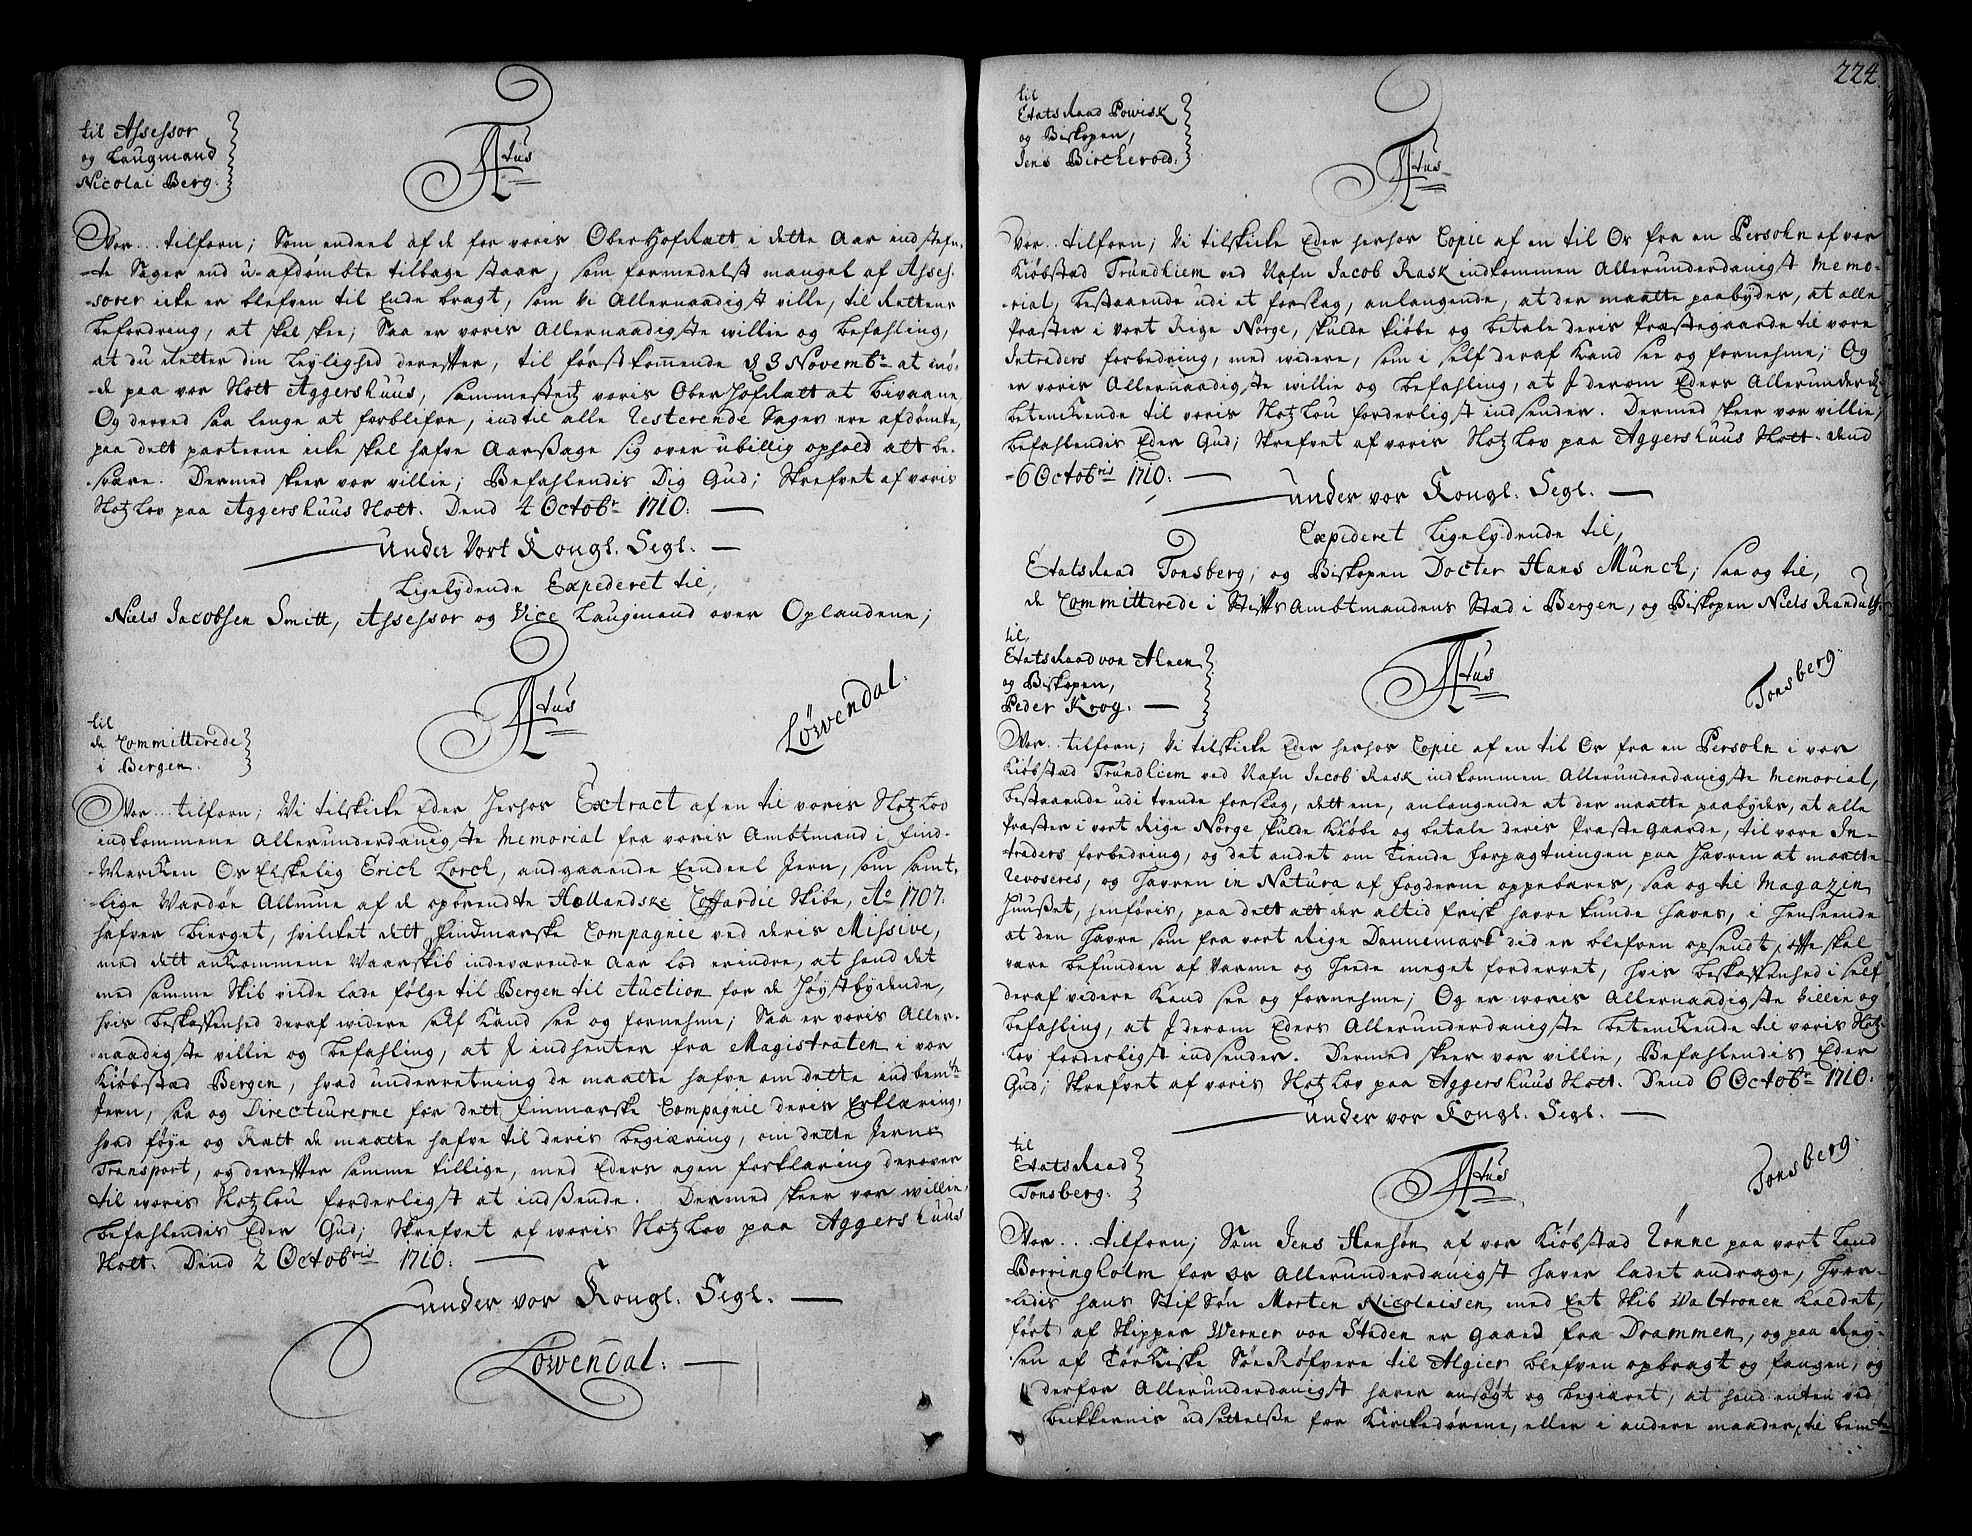 til Assessor
og Laugmand
Nicolai Berg.
Atus
Vor... tilforn; Som endeel af de for voris OberHofRætt i dette Aar indstefn-
-te Sager end u-afdømbte tilbage staar, som formedelst mangel af Asses-
-sorer icke er blefven til Ende bragt, som Vi Allernaadigst ville, til Rettens
befordring, at skal skee; Saa er voris Allernaadigste willie og befahling,
at du Retter din Leylighed derefter, til førstkommende d 3 Novembr at mø-
-de paa vor Slott Aggershuus, sammestedz voris OberHofRætt at bivaane,
Og derved saa lenge at forblifve, indtil alle Resterende Sager ere afdømte,
paa det parterne icke skal hafve Aarsage sig over ubillig ophold att be-
-svære. Dermed skeer vor villie; Befahlendis Dig Gud; Skrefvet af voris
Slotz Lov paa Aggershuus Slott. Dend 4 Octobr 1710.
Under Vort Kongl. Segl.
Ligelydende Expederet til,
Niels Jacobsen Smitt, Assessor og Vice Laugmand over Oplandene;
Løwendal.
til
de Committerede
i Bergen.
Atus
Vor... tilforn; Vi tilskicke Eder herhos Extract af en til voris Slotz Lov
indkommene Allerunderdanigste Memorial fra voris Ambtmand i Find-
-Marcken Os Elskelig Erich Lorch, andgaaende Eendeel Jern, som samt-
-lige Wardøe Allmue af de opbrendte Hollandske Coffardie Skibe, Ao 1707.
hafver bierget, hvilcket dett Findmarske Compagnie ved deris Missive,
med dett ankommene Waarskib indeværende Aar lod erindre, at hand det
med samme Skib vilde lade følge til Bergen til Auction for de Høystbydende,
hvis beskaffenhed deraf widere self Kand see og fornehme; Saa er voris Aller-
-naadigste villie og befahling, at I indhenter fra Magistraten i vor
Kiøbstad Bergen, hvad underretning de maatte hafve om dette andbemte
Jern, saa og Directeurerne for dett Finmarske Compagnie deris Erklæring,
hvad føye og Rætt de maatte hafve til deris begiæring, om dette Jerns
Transport, og derefter samme tillige, med Eders egen forklaring derover
til woris Slotz Lou forderligst at indsende. Dermed skeer vor willie,
befahlendis Eder Gud; Skrefvet af woris Slotz Lov paa Aggershuus
Slott. Dend 2 Octobris 1710.
under vor Kongl. Segl.
Løwendal.
224.
til
EtatsRaad Powisk
og Biskopen,
Jens Bircherod.
Atus
Vor... tilforn; Vi tilskicke Eder herhos Copie af en til Os fra en Persohn af vor
Kiøbstad Trundhiem ved Nafn Jacob Rask indkommen Allerunderdanigst Memo-
-rial, bestaaende udi et forslag, anlangende, at der maatte paabydes, at alle
Præster i vort Rige Norge, skulde kiøbe og betale deris Præstegaarde til vore
Intraders forbedring, med widere, som i self deraf Kand see og fornehme; Og
er voris Allernaadigste willie og befahling, at I derom Eders Allerunderd
betenckende til voris Slotz Lou forderligst indsender. Dermed skeer vor villie,
befahlendis Eder Gud; Skrefvet af voris Slotz Lov paa Aggershuus Slott. dend
-6 Octobris 1710.
under vor Kongl. Segl.
Expederet Ligelydende til,
EtatsRaad Tonsberg, og Biskopen Docter Hans Munch, saa og til,
de Committerede i StiftsAmbtmandens Stæd i Bergen, og Biskopen Niels Randulf.
Tonsberg.
til,
EtatsRaad von Ahnen
og Biskopen,
Peder Krog.
Atus
Vor... tilforn; Vi tilskicke Eder herhos Copie af en til Os fra en Persohn i vor
Kiøbstad Trundhiem ved Nafn Jacob Rask indkommen Allerunderdanigste Memorial,
bestaaende udi tvende forslag, dett ene, anlangende at der maatte paabydes, at alle
Præster i vort Rige Norge skulde Kiøbe og betale deris Præste Gaarde, til vore In-
-traders forbedring, og det andet om Tiende forpagtningen paa Havren at maatte
revoseres, og Havren in Natura af fogderne oppebæres, saa og til Magazin
Huuset, henføris, paa dett att der altid frisk havre kunde haves, i henseende
at den Havre som fra vort Rige Dannemark did er blefven opsendt, ofte skal
være befunden af Varme og Heede meget fordervet, hvis beskaffenhed i self
deraf videre Kand see og fornehme; Og er woris Allernaadigste Villie og
befahling, at I derom Eders Allerunderdanigste betenckende til voris Slotz
Lov forderligst indsender. Dermed skeer vor villie, Befahlendis Eder
Gud; Skrefvet af voris Slotz Lov paa Aggershuus Slott. Dend 6 Octobr 1710.
under vor Kongl. Segl.
Tonsberg.
til
EtatsRaad
Tonsberg.
Atus
Vor... tilforn; Som Jens Hansøn af vor Kiøbstad Rønne paa vort Land
Borringholm for os Allerunderdanigst haver ladet andrage, hvor-
-ledis hans Stif Søn Morten Nicolaisen, med Eet Skib Waltronen kaldet,
ført af Skipper Werner von Staden er Gaaed fra Drammen, og paa Rey-
-sen af Tørkiske SøeRøfvere til Algier blefven opbragt og fangen, og
derfor Allerunderdanigst haver ansøgt og begiæret, at hand enten ved
beckkernis udsettelse for Kirckedørene, eller i andere maader, til bemte